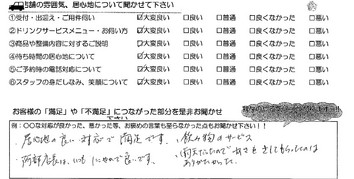 店舗の雰囲気、居心地について聞かせて下さい
①受付・出迎え・ご用件伺い ☑大変良い □良い □普通 □良くなかった □悪い
②ドリンクサービスメニュー・お伺い方 ☑大変良い □良い □普通 □良くなかった □悪い
③商品や整備内容に対するご説明 ☑大変良い □良い □普通 □良くなかった □悪い
④待ち時間の居心地について ☑大変良い □良い □普通 □良くなかった □悪い
⑤ご予約時の電話対応について ☑大変良い □良い □普通 □良くなかった □悪い
⑥スタッフの身だしなみ、笑顔について ☑大変良い □良い □普通 □良くなかった □悪い
お客様の「満足」や「不満足」につながった部分を是非お聞かせ下さい
例:○○な対応が良かった、悪かった等、お褒めの言葉も至らなかった点もお聞かせ下さい!!
居心地の良い対応で満足です。
飲み物のサービス
阿部店長は、いつもにこやかで良いです。
ありがたかった。